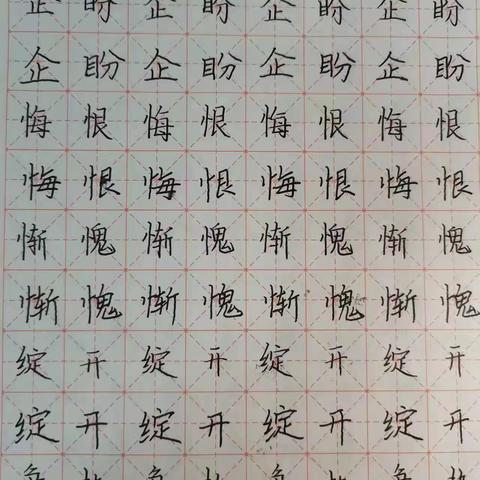 企盼企盼企盼企盼
企盼企盼企盼企盼
悔恨悔恨悔恨悔恨
悔恨悔恨悔恨悔恨
惭愧惭愧惭愧惭愧
惭愧惭愧惭愧惭愧
绽开绽开绽开绽开
绽开绽开绽开绽开